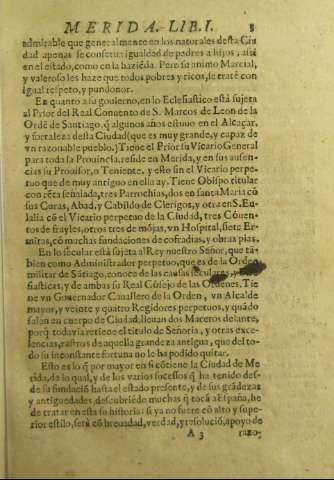 MERIDA. LIB. I. 3
admirable que generalmente en los naturales desta Ciu
dad apenas se conserua igualdad de padres a hijos, assi
en el estado, como en la haziēda. Pero su animo Marcial,
y valeroso les haze que todos pobres y ricos, se tratē con
igual respeto, y pundonor.
En quanto a su gouierno, en lo Eclesiastico está sujeta
al Prior del Real Conuento de S. Marcos de Leon de la
Ordē de Santiago, q̄ algunos años estuuo en el Alcaçar,
y fortaleza desta Ciudad (que es muy grande, y capaz de
vn razonable pueblo.) Tiene el Prior su Vicario General
para toda la Prouincia, reside en Merida, y en sus ausen-
cias su Prouisor, o Teniente, y esto sin el Vicario perpe-
tuo que de muy antiguo en ella ay. Tiene Obispo titular
con rēta señalada, tres Parrochias, dos en santa Maria cō
sus Curas, Abad, y Cabildo de Clerigos, y otra en S. Eu-
lalia cō el Vicario perpetuo de la Ciudad, tres Cōuen-
tos de frayles, otros tres de mōjas, vn Hospital, siete Er-
mitas, cō muchas fundaciones de cofradias, y obras pias.
En lo secular está sujeta al Rey nuestro Señor, que tā-
bien como Administrador perpetuo, que es de la Orden
militar de Sātiago, conoce de las causas seculares, y
siasticas, y de ambas su Real Cōsejo de las Ordenes. Tie
ne vn Gouernador Cauallero de la Orden, vn Alcalde
mayor, y veinte y quatro Regidores perpetuos, y quādo
salen en cuerpo de Ciudad, lleuan dos Maceros delante,
porq̄ todavia retiene el titulo de Señoria, y otras exce-
lencias, rastros de aquella grandeza antigua, que del to-
do su inconstante fortuna no le ha podido quitar.
Esto es lo q̄ por mayor en si cōtiene la Ciudad de Me
rida, de lo qual, y de los varios sucessos q̄ ha tenido des-
de su fundaciō hasta el estado presente, y de sus grādezas
y antiguedades, descubriēdo muchas q̄ tocā a España, he
de tratar en esta su historia: si ya no fuere cō alto y supe-
rior estilo, será cō breuedad, verdad, y resoluciō, apoyo de
A 3 razo-